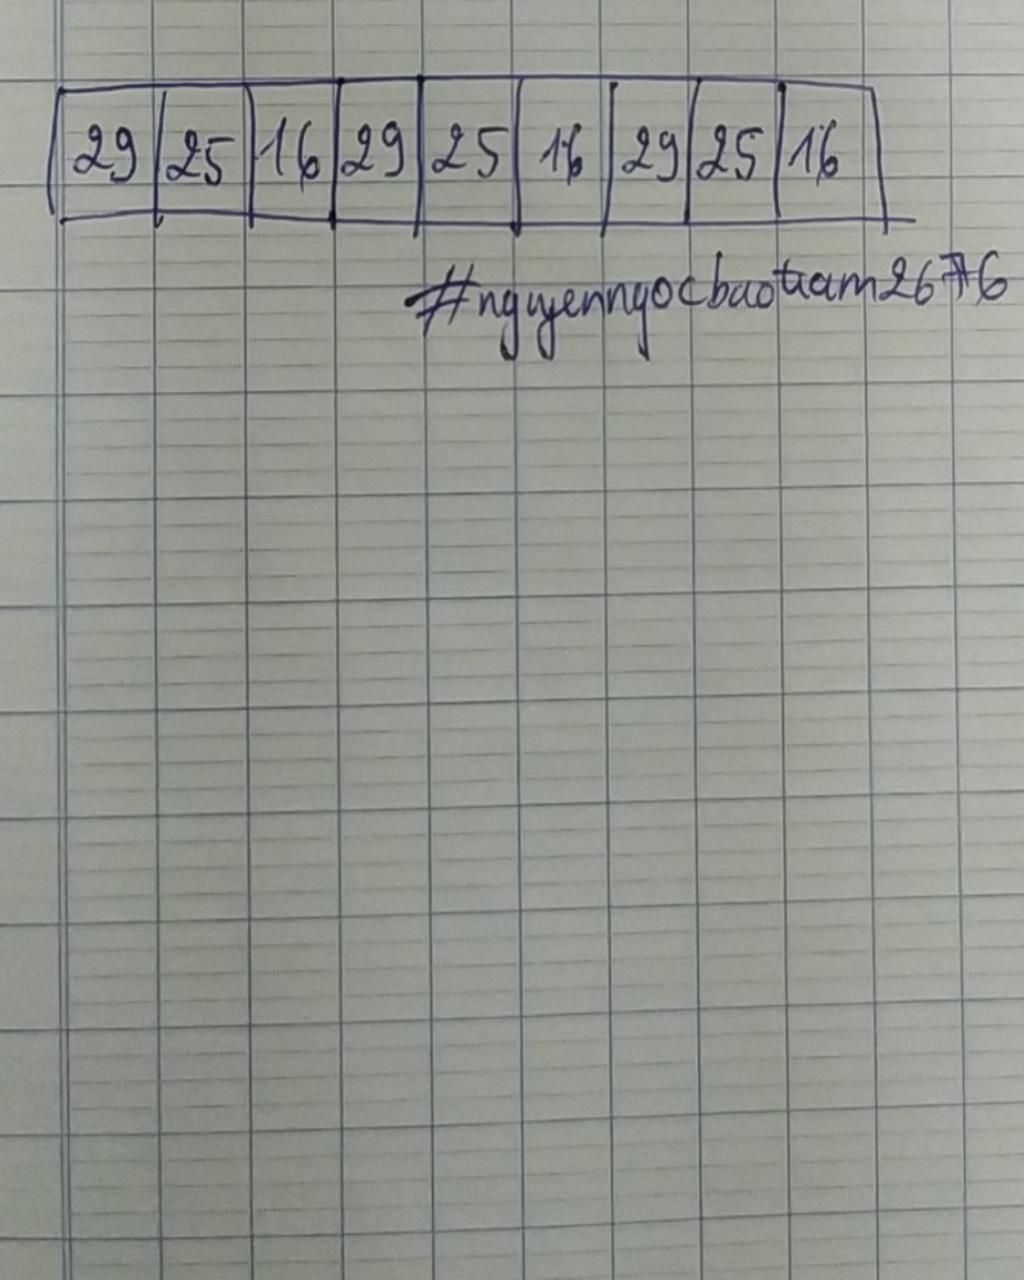 29 25 16 29 25 16 29 25 16
#nguyenngocbaotram2676